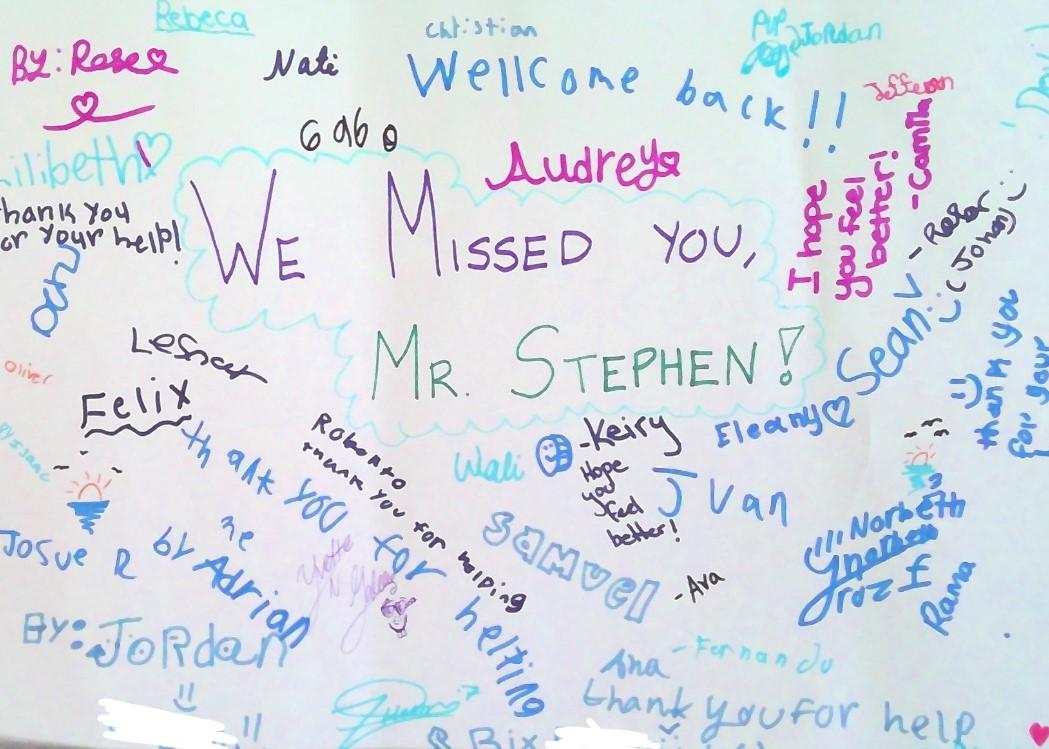 Rebeca
BY: Rose
Nati
Christian
Wellcome back!!
Jordan
Jefferson
Gabo
Audrey
I hope
you feel
better!
-Camila
ilibeth
hank you
or your help!
WE MISSED YOU,
MR. STEPHEN!
Sean
Oliver
Felix
thank you for helting
me
by Adrian
Roberto
thank you for helping
Wali
-Keiry
Hope
you
feel
better!
-Ava
Eleany
JVan
Samuel
thank you
for your
Norbeth
ruz f
Rama
Josue R
BY: JoRdan
Ana
-Fernando
thank you for help